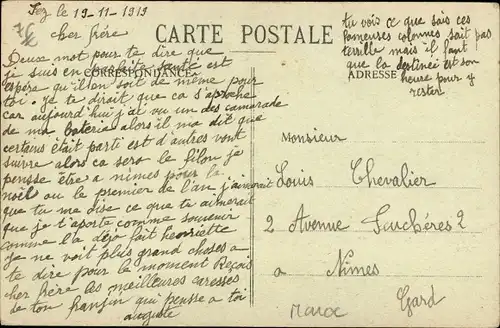 Fez le 19-11-1919
cher frère
Deux mot pour te dire que
je suis en parfaite santé est
espère qu'il en soit de même pour
toi. Je te dirait que ca s'aproche
car aujourd hui j'at vu un des camarade
de ma baterie alors il ma dit que
certains était parti est d'autres vont
suivre alors ca sera le filon je
pensse être a nimes pour la
noël ou le premier de l'an j'aimerait
que tu me dise ce que tu aimerait
que je t'aporte comme souvenir
comme l'a déja fait henriette
je ne voit plus grand choses a
te dire pour le moment Reçois
cher frère les meilleures caresses
de ton frangin qui pensse a toi
auguste
CARTE POSTALE
CORRESPONDANCE
tu vois ce que sais ces
fameuses colonnes sait pas
terrible mais il faut
que la destinée est son
heure pour y
rester
ADRESSE
Monsieur
Louis Chevalier
2 Avenue Feuchères 2
a Nimes
Gard
Maroc